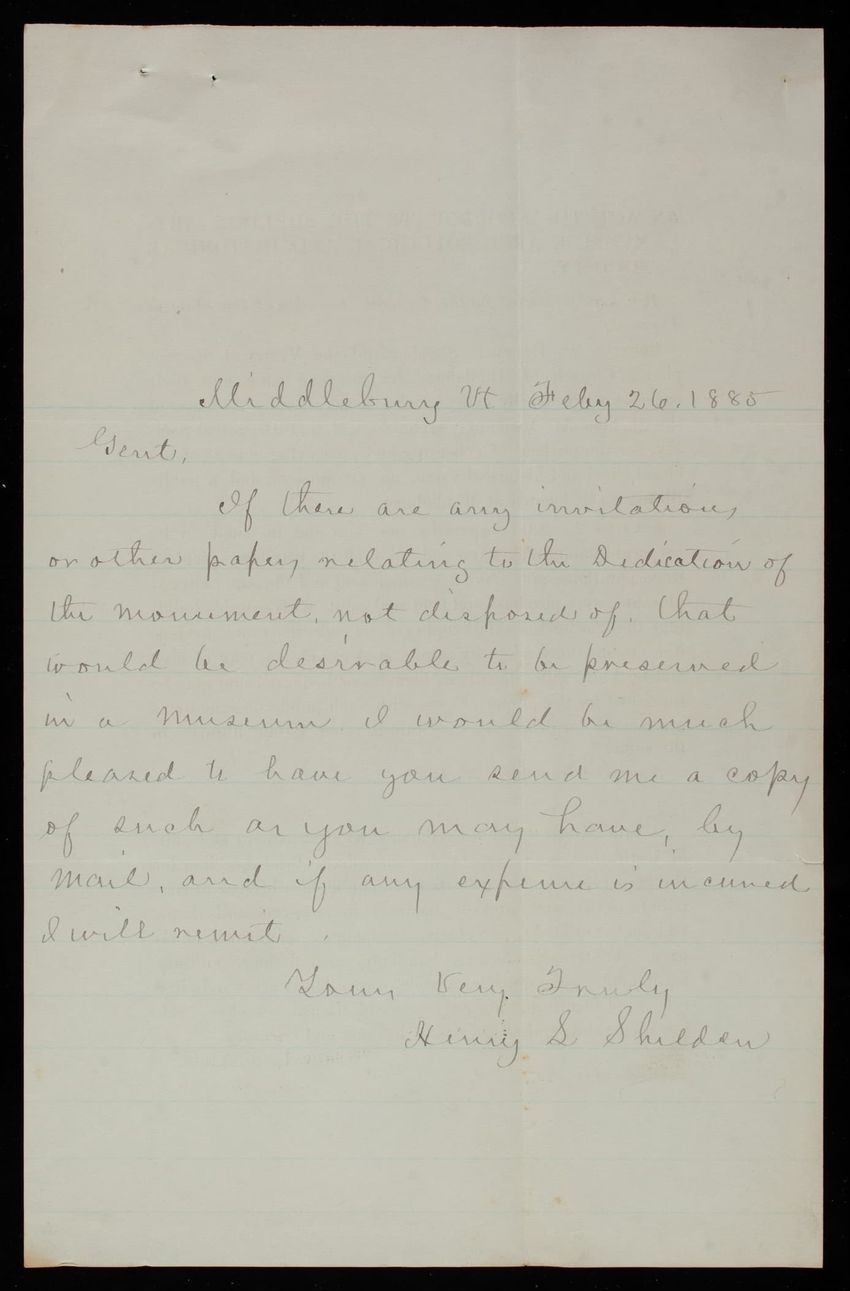 Middlebury Vt Feby 26. 1885
Gent,
If there are any invitations
or other papers relating to the Dedication of
the monument, not disposed of, that
would be desirable to be preserved
in a Museum I would be much
pleased to have you send me a copy
of such as you may have, by
mail, and if any expense is incurred
I will remit.
Yours Very Truly
Henry L Sheldon